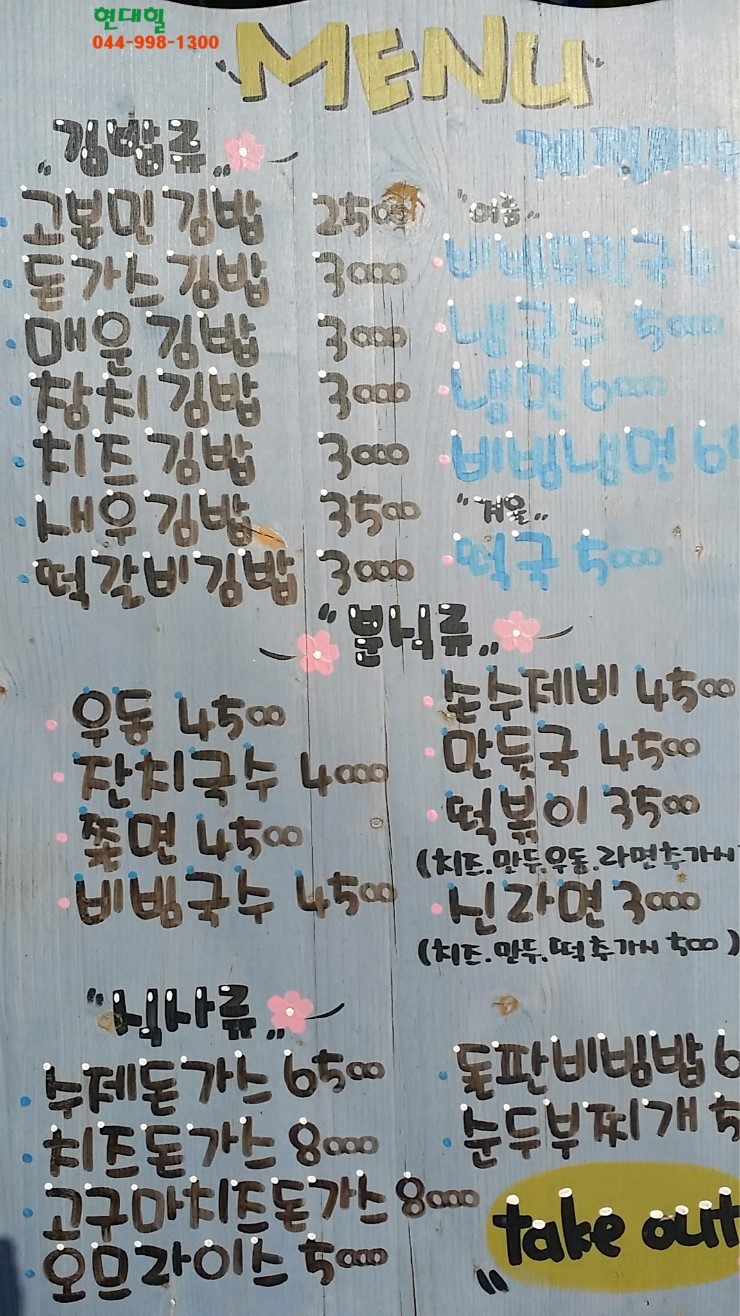 현대힐
044-998-1300
MENU
"김밥류"
고봉민김밥 2500
돈가스김밥 3000
매운김밥 3000
참치김밥 3000
치즈김밥 3000
새우김밥 3500
떡갈비김밥 3000
계절메뉴
"여름"
냉국수 5000
냉면 6000
비빔냉면 6
"겨울"
떡국 5000
"분식류"
우동 4500
잔치국수 4000
쫄면 4500
비빔국수 4500
손수제비 4500
만둣국 4500
떡볶이 3500
(치즈.만두.우동.라면추가시
신라면 3000
(치즈.만두.떡추가시 500)
"식사류"
수제돈가스 6500
치즈돈가스 8000
고구마치즈돈가스 8000
오므라이스 5000
돌판비빔밥 6
순두부찌개 5
take out